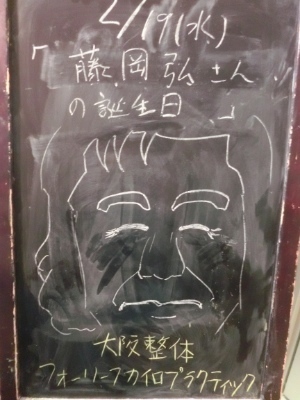 2/19(水)
「藤岡弘さん
の誕生日」
大阪整体
フォーリーフカイロプラクティック